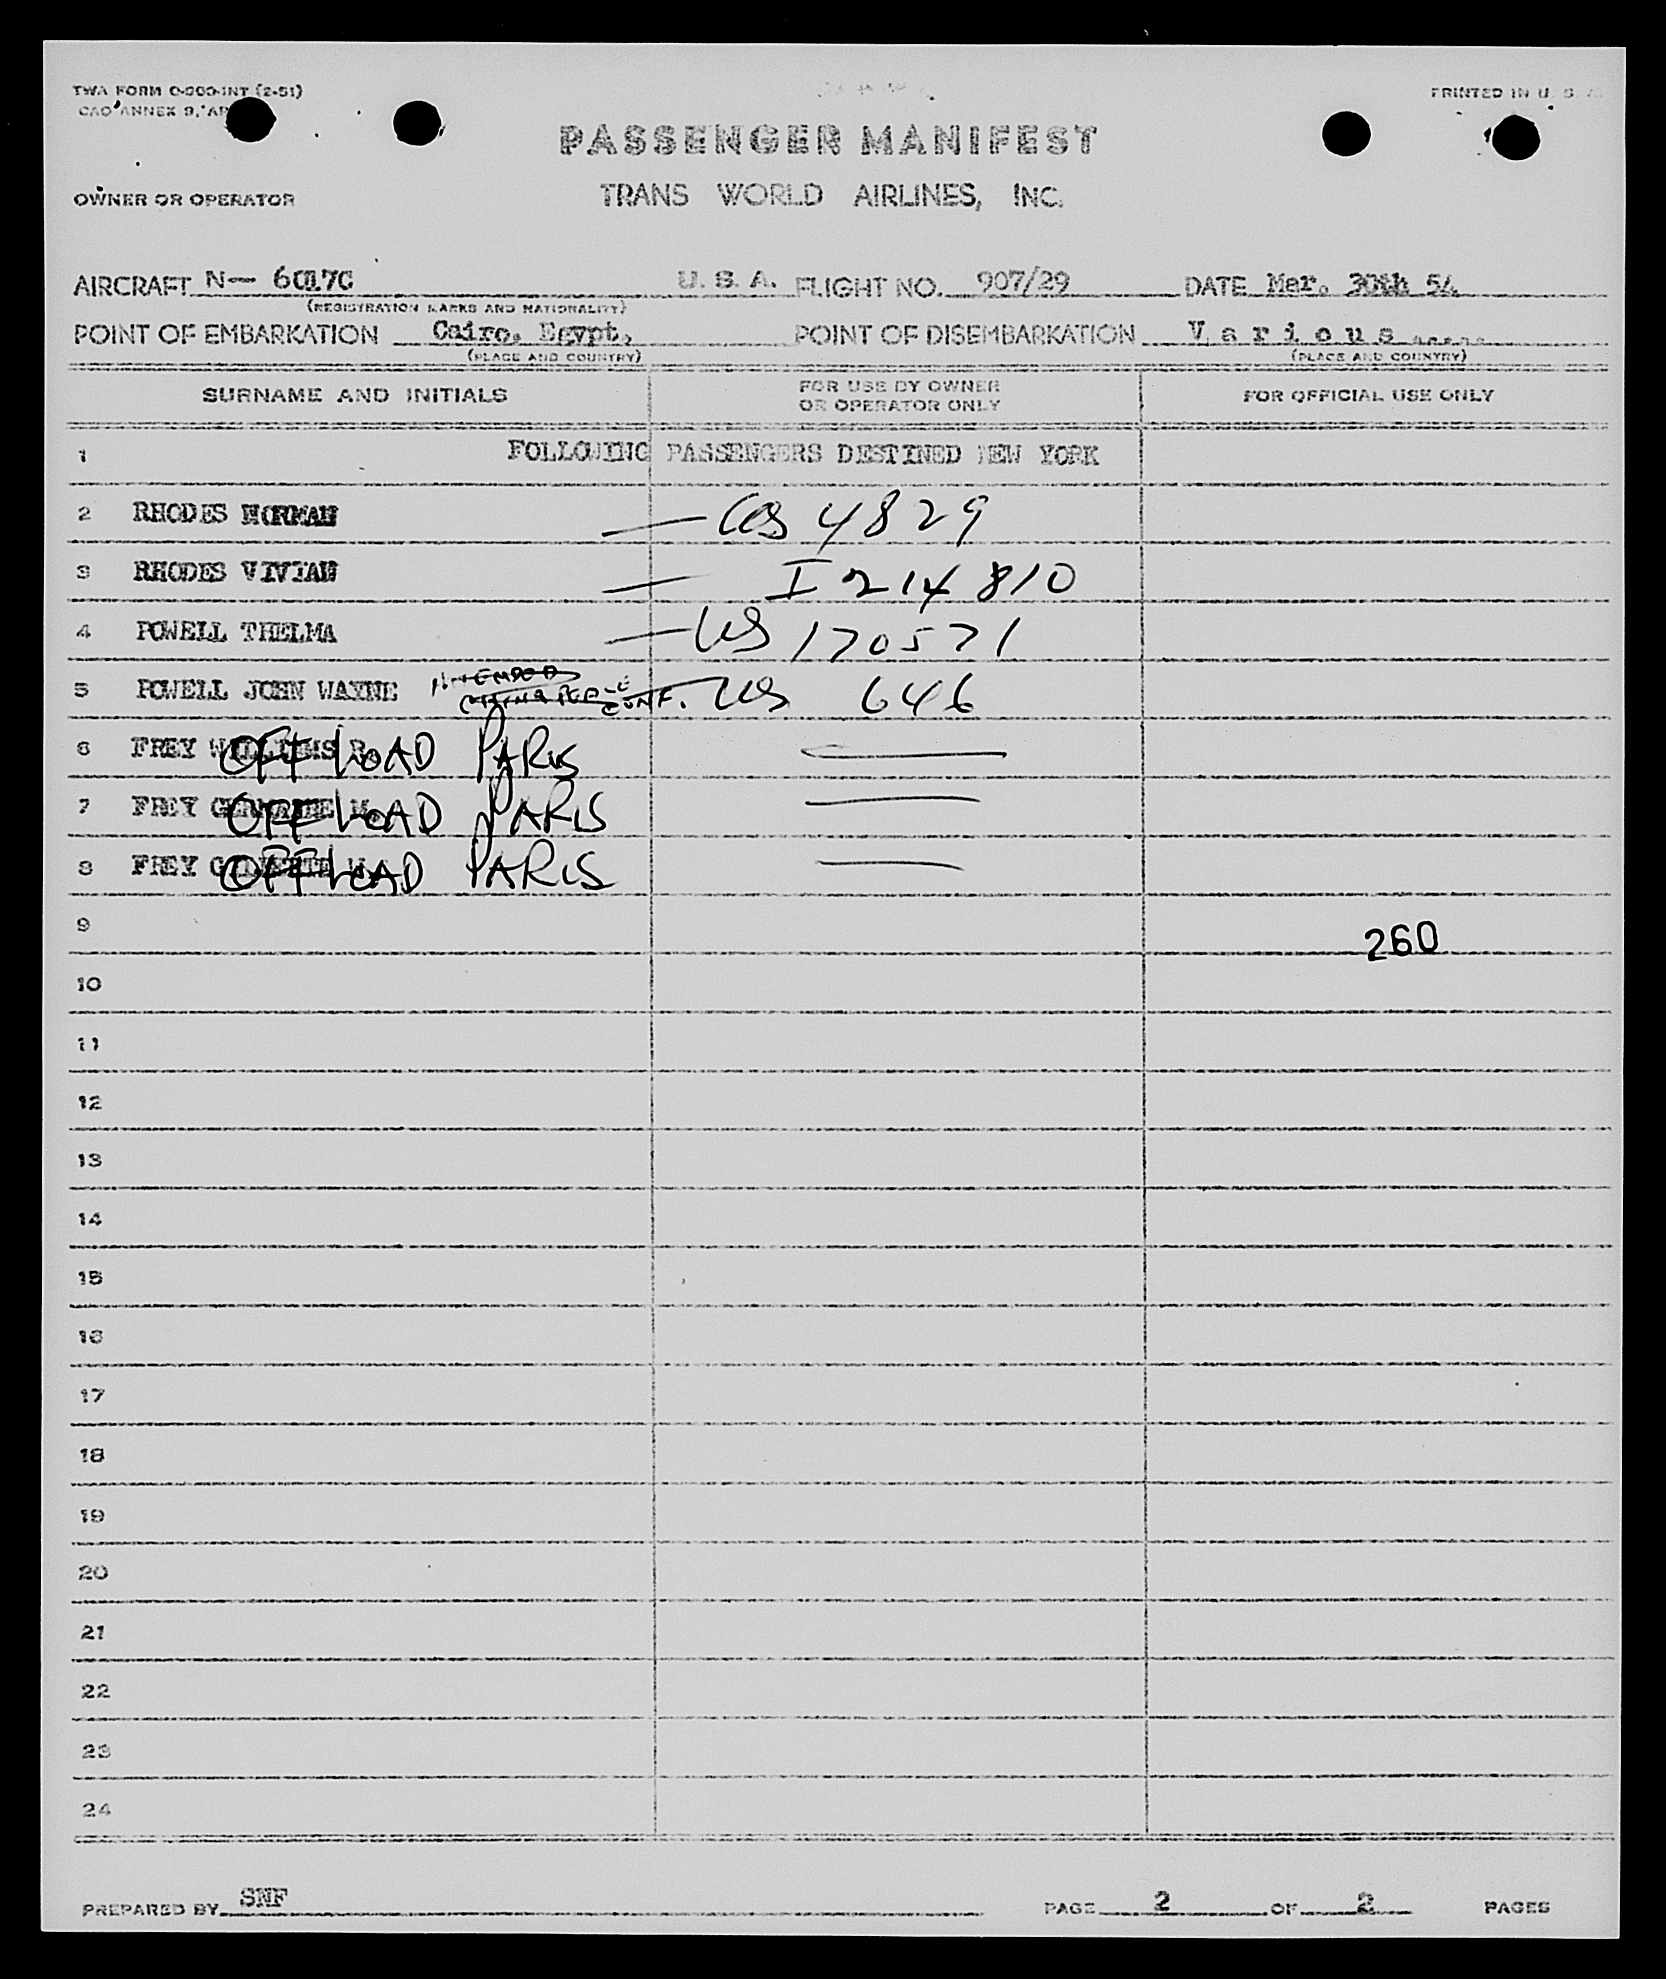 TWA FORM O-300-INT (2-51)
PRINTED IN U. S. A.
CAO ANNEX 9, AP
PASSENGER MANIFEST
OWNER OR OPERATOR TRANS WORLD AIRLINES, INC.
AIRCRAFT N— 6017C U. S. A. FLIGHT NO. 907/29 DATE Mar. 30th 54
(REGISTRATION MARKS AND NATIONALITY)
POINT OF EMBARKATION Cairo, Egypt, POINT OF DISEMBARKATION V a r i o u s .....
(PLACE AND COUNTRY) (PLACE AND COUNTRY)
SURNAME AND INITIALS FOR USE BY OWNER OR OPERATOR ONLY FOR OFFICIAL USE ONLY
1 FOLLOWING PASSENGERS DESTINED NEW YORK
2 RHODES NORMAN — US 4829
3 RHODES VIVIAN — I 214810
4 POWELL THELMA — US 170571
5 POWELL JOHN WAYNE CONF. US 646
6 FREY OFF LOAD PARIS —
7 FREY OFF LOAD PARIS —
8 FREY OFF LOAD PARIS —
9 260
10
11
12
13
14
15
16
17
18
19
20
21
22
23
24
PREPARED BY SNF PAGE 2 OF 2 PAGES